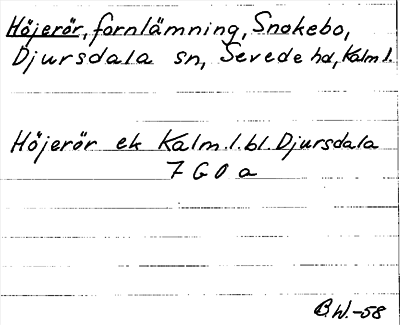 Höjerör, fornlämning, Snokebo,
Djursdala sn, Sevede hd, Kalm l.
Höjerör ek Kalm.l.bl. Djursdala
7 G 0 a
B.W.-58